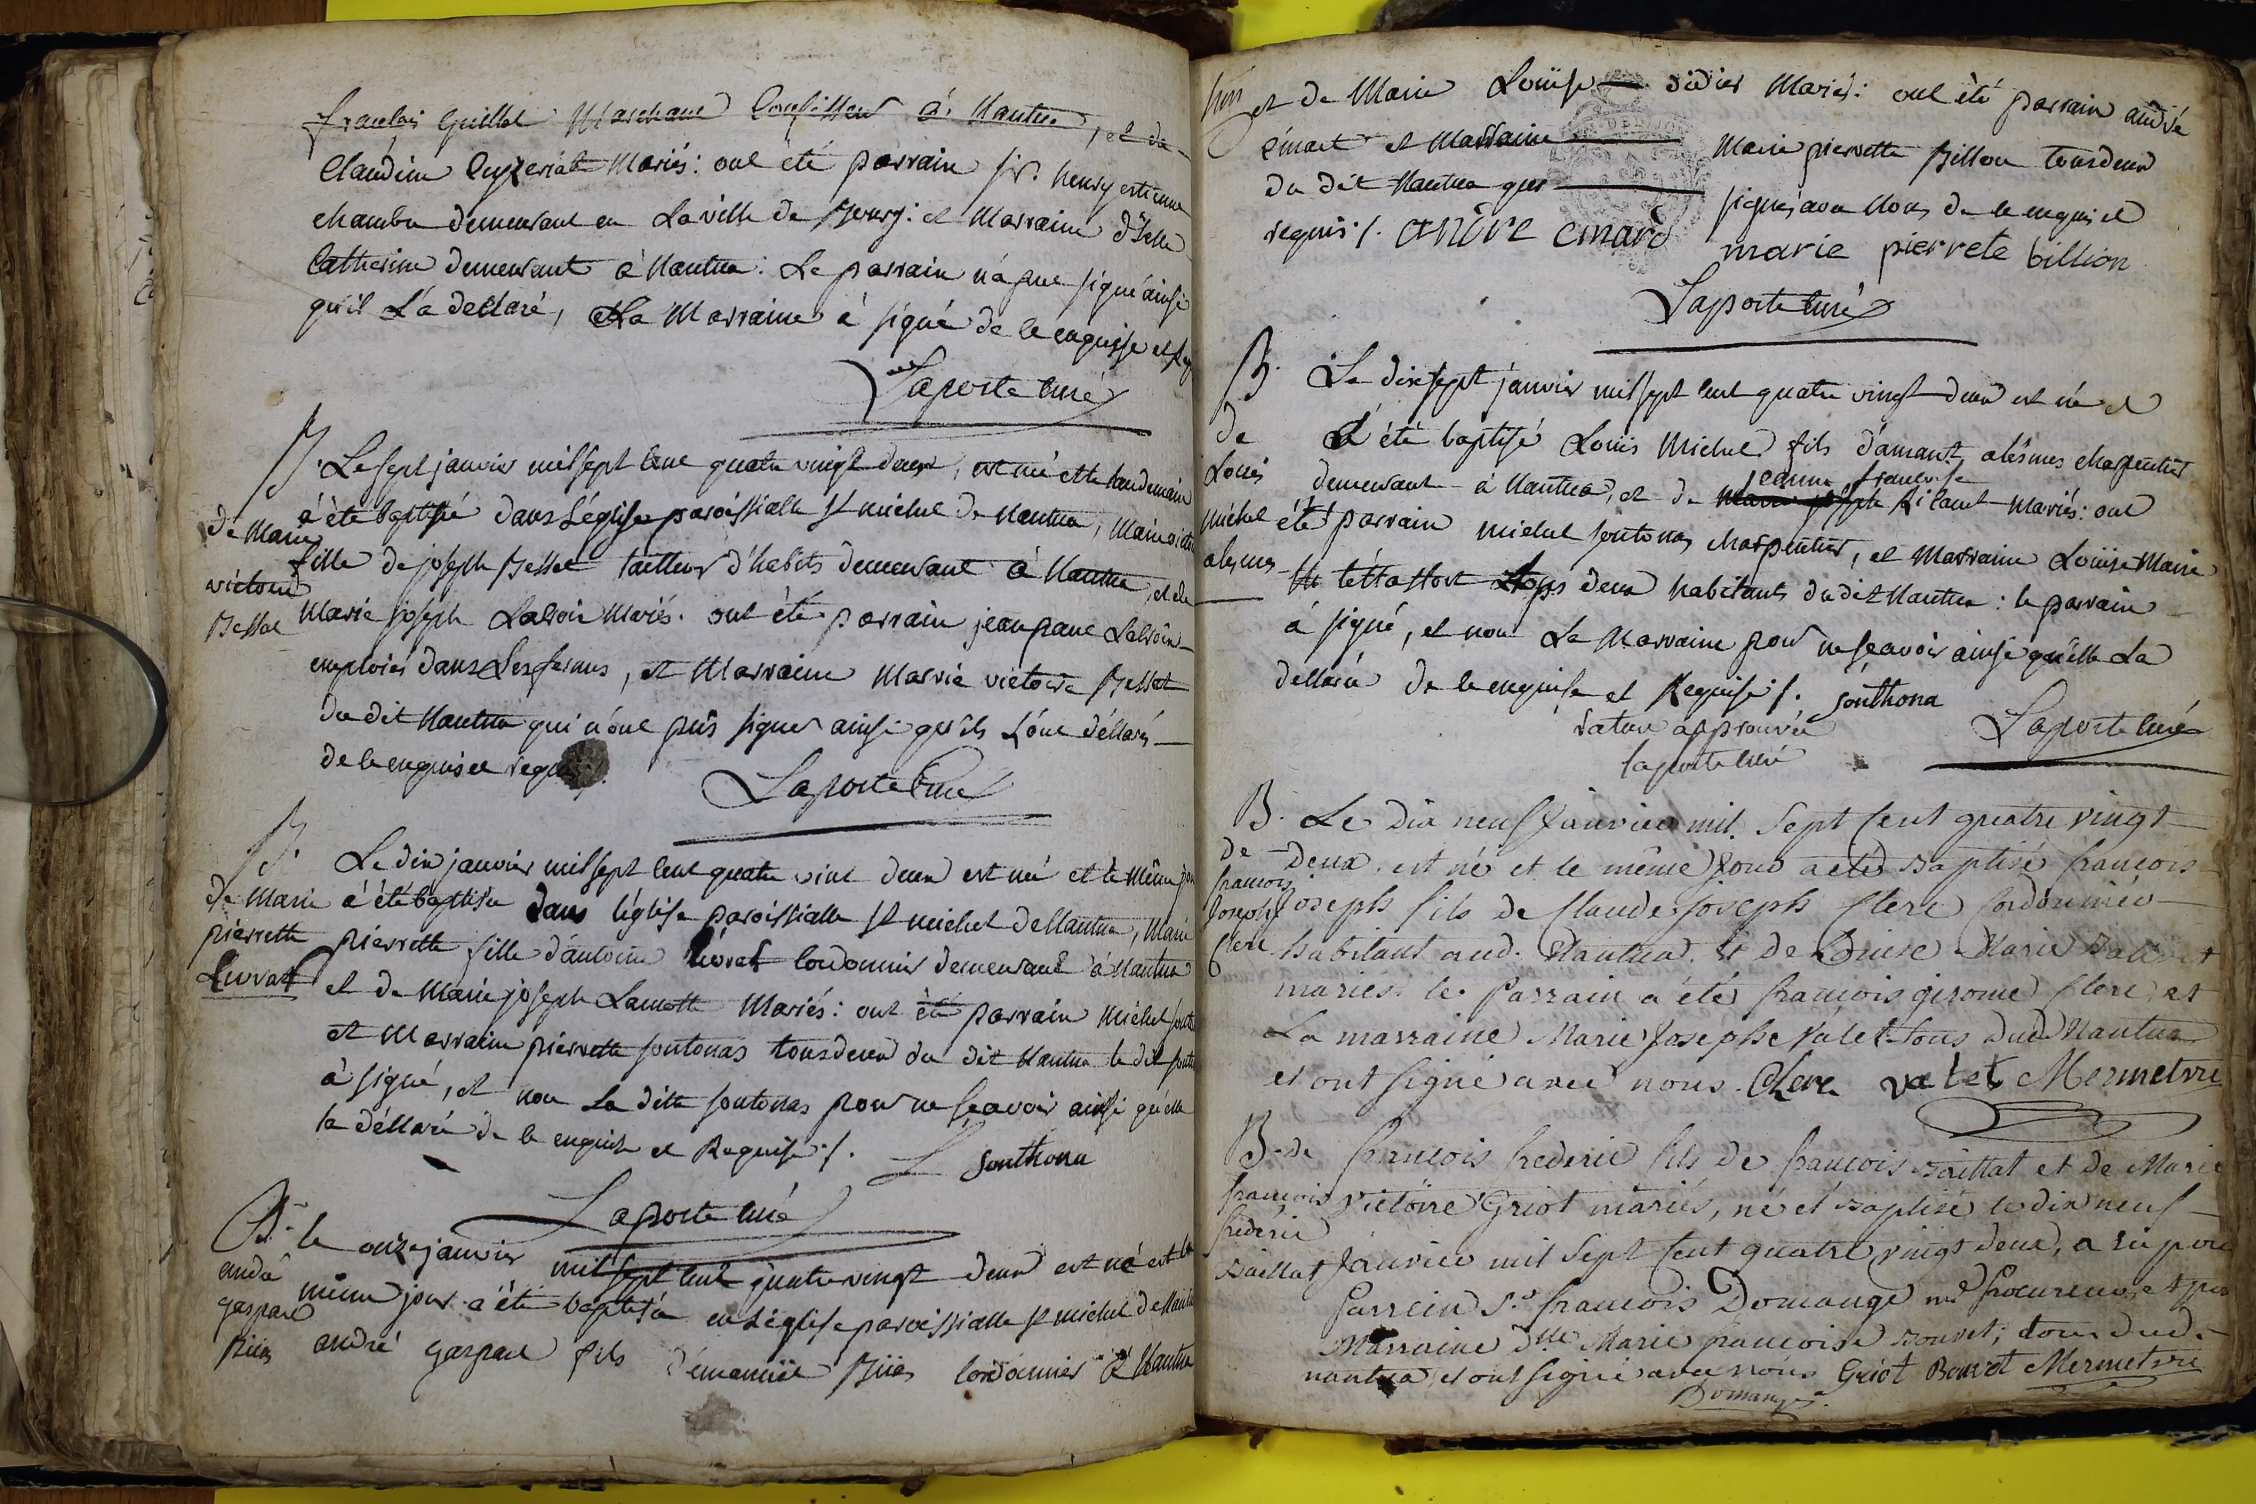 francois Guillot Marchand Confisseur à Nantua, et de
Claudine mariés: ont été parrain sr. henry estienne
chambre demeurant en La ville de Bourg: et Marraine dslle
Catherine demeurante à Nantua: Le parrain n'a pue signé ainsi
qu'il L'a déclaré, et La Marraine à signé de ce enquise et
Laporte curé
B. Le sept janvier mil sept cent quatre vingt deux, est né et le lendemain
à été baptisée dans L'église paroissialle St michel de Nantua, Marie
de Marie
fille de joseph Bessat tailleur d'habits demeurant à Nantua, et de
victoire
Marie joseph mariés. ont été parrain jean paul
Bessat
emploiés dans Les fermes, et Marraine Marie victoire Bessat
du dit Nantua qui n'ont pus signer ainsi qu'ils L'ont déclarés
de ce enquis et
Laporte Curé
B. Le dix janvier mil sept cent quatre vint deux est né et le même
de Marie à été baptisée dans l'église paroissialle St michel de Nantua, Marie
pierrette pierrette fille d'antoine cordonnier demeurant à Nantua
et de Marie joseph Lamotte Mariés: ont été parrain Michel
et Marraine pierrette soutonas tous deux du dit Nantua le dit
à signé, et non La ditte soutonas pour ne sçavoir ainsi qu'elle
la déclaré de ce enquise et Requise ./.
Southona
Laporte curé
B. le onze janvier mil sept cent quatre vingt deux est né et le
andré même jour à été baptisé en L'église paroissialle St michel de
gaspard andré gaspard fils cordonnier à Nantua
et de Marie Louise Didier Mariés: ont été parrain andré
émart et Marraine Marie pierrette Billion tous deux
du dit Nantua qui signés avec Nous de ce enquis et
requis ./. andre emard marie pierrete billion
Laporte curé
B. Le dix sept janvier mil sept cent quatre vingt deux est né et
de à été baptisé Louis Michel fils d'amant alesmes charpentier
Jeanne francoise
Louis demeurant à Nantua, et de mariés: ont
michel été parrain michel soutonas charpentier, et Marraine Louise Marie
alesmes tous deux habitants du dit Nantua: le parrain
à signé, et non La Marraine pour ne sçavoir ainsi qu'elle La
déclaré de ce enquise et Requise ./. southona
rature approuvée
Laporte curé
laporte curé
B. Le dix neuf Janvier mil. Sept Cent quatre vingt
de Deux, est né et le même Jour a été Baptisé francois
francois
Joseph joseph fils de Claude joseph Clere Cordonnier
Clere habitant aud. Nantua. et de Louise Marie
mariés. le Parrain a été francois girome Clere, et
La marraine Marie Josephe Valet tous dud Nantua
et ont signé avec nous. Clere valet Mermetvre
B. de francois frederic fils de francois Baillat et de Marie
francois victoire Griot mariés, né et Baptisé le dix neuf
frederic
Baillat Janvier mil Sept Cent quatre vingt deux, a eu pour
Parrein Sr. francois Domange md Procureur et pour
Marraine dlle Marie francoise Bouvet; tous dud.
nantua et ont signé avec nous Griot Bouvet Mermetvre
Domange.